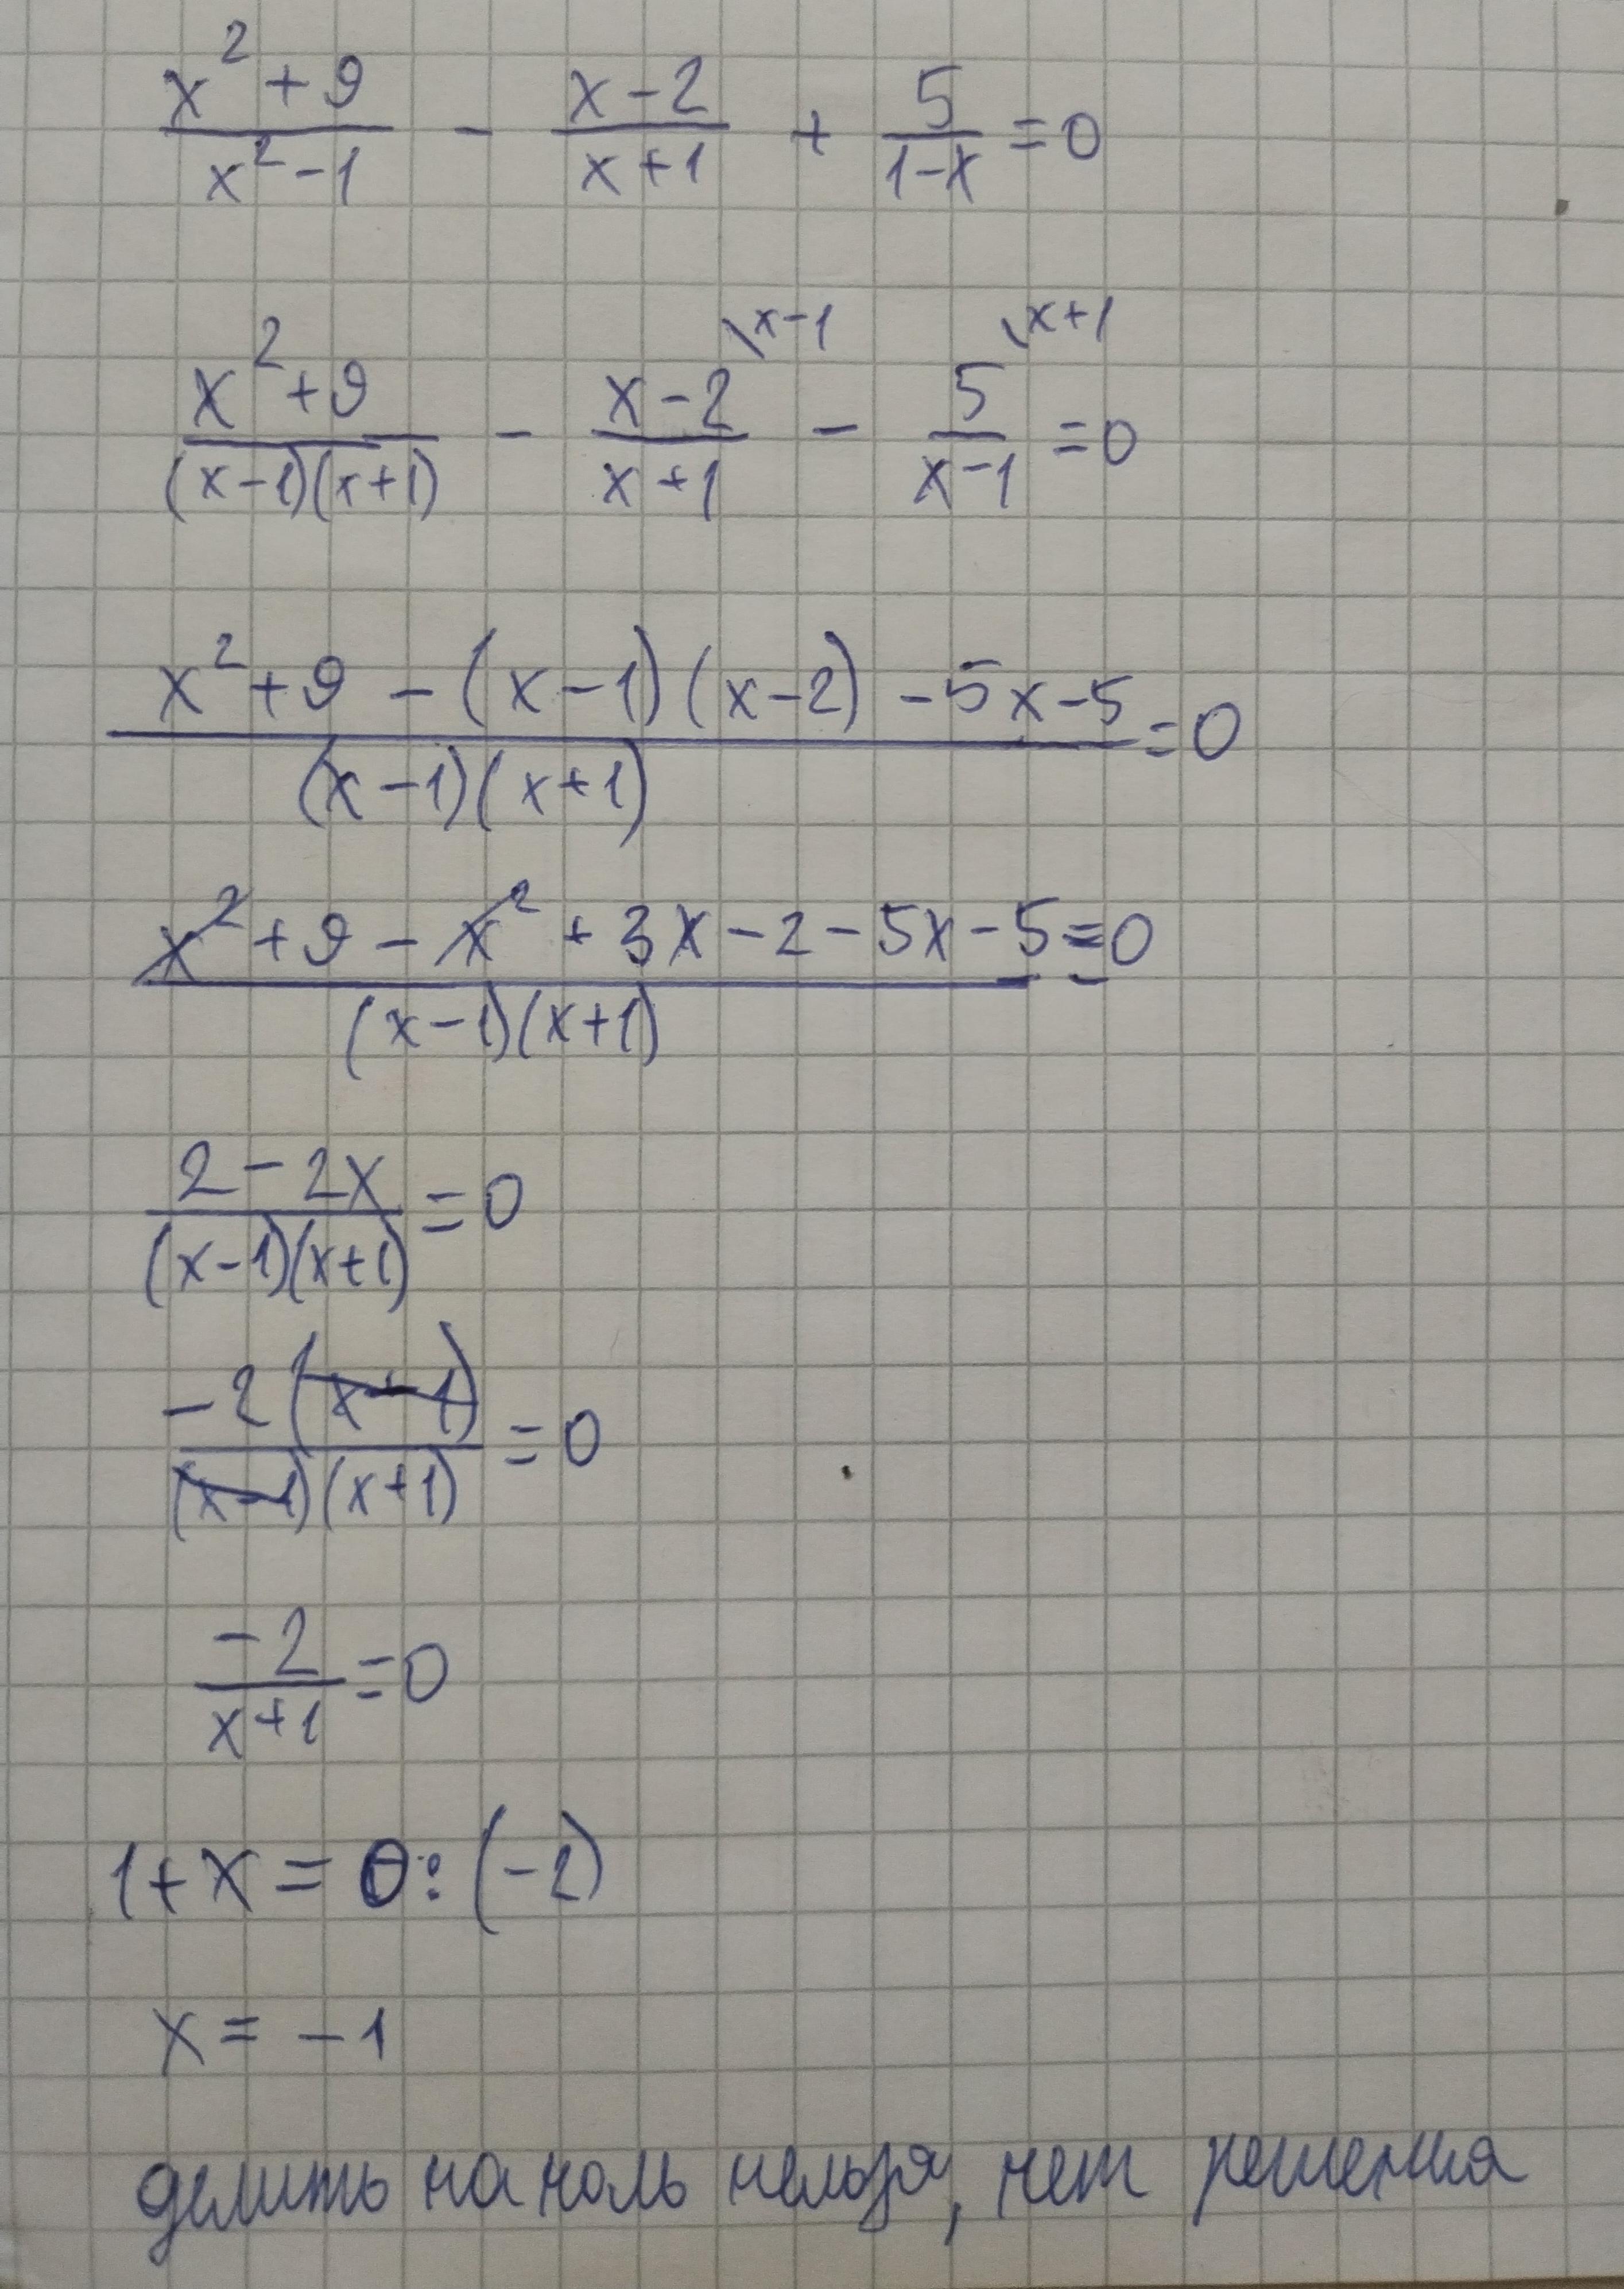 (x²+9)/(x²-1) - (x-2)/(x+1) + 5/(1-x) = 0
(x²+9)/((x-1)(x+1)) - (x-2)\x-1/(x+1) - 5\x+1/(x-1) = 0
(x²+9-(x-1)(x-2)-5x-5)/((x-1)(x+1)) = 0
(x²+9-x²+3x-2-5x-5)/((x-1)(x+1)) = 0
(2-2x)/((x-1)(x+1)) = 0
-2(x-1)/((x-1)(x+1)) = 0
-2/(x+1) = 0
1+x = 0:(-2)
x = -1
делить на ноль нельзя, нет решения